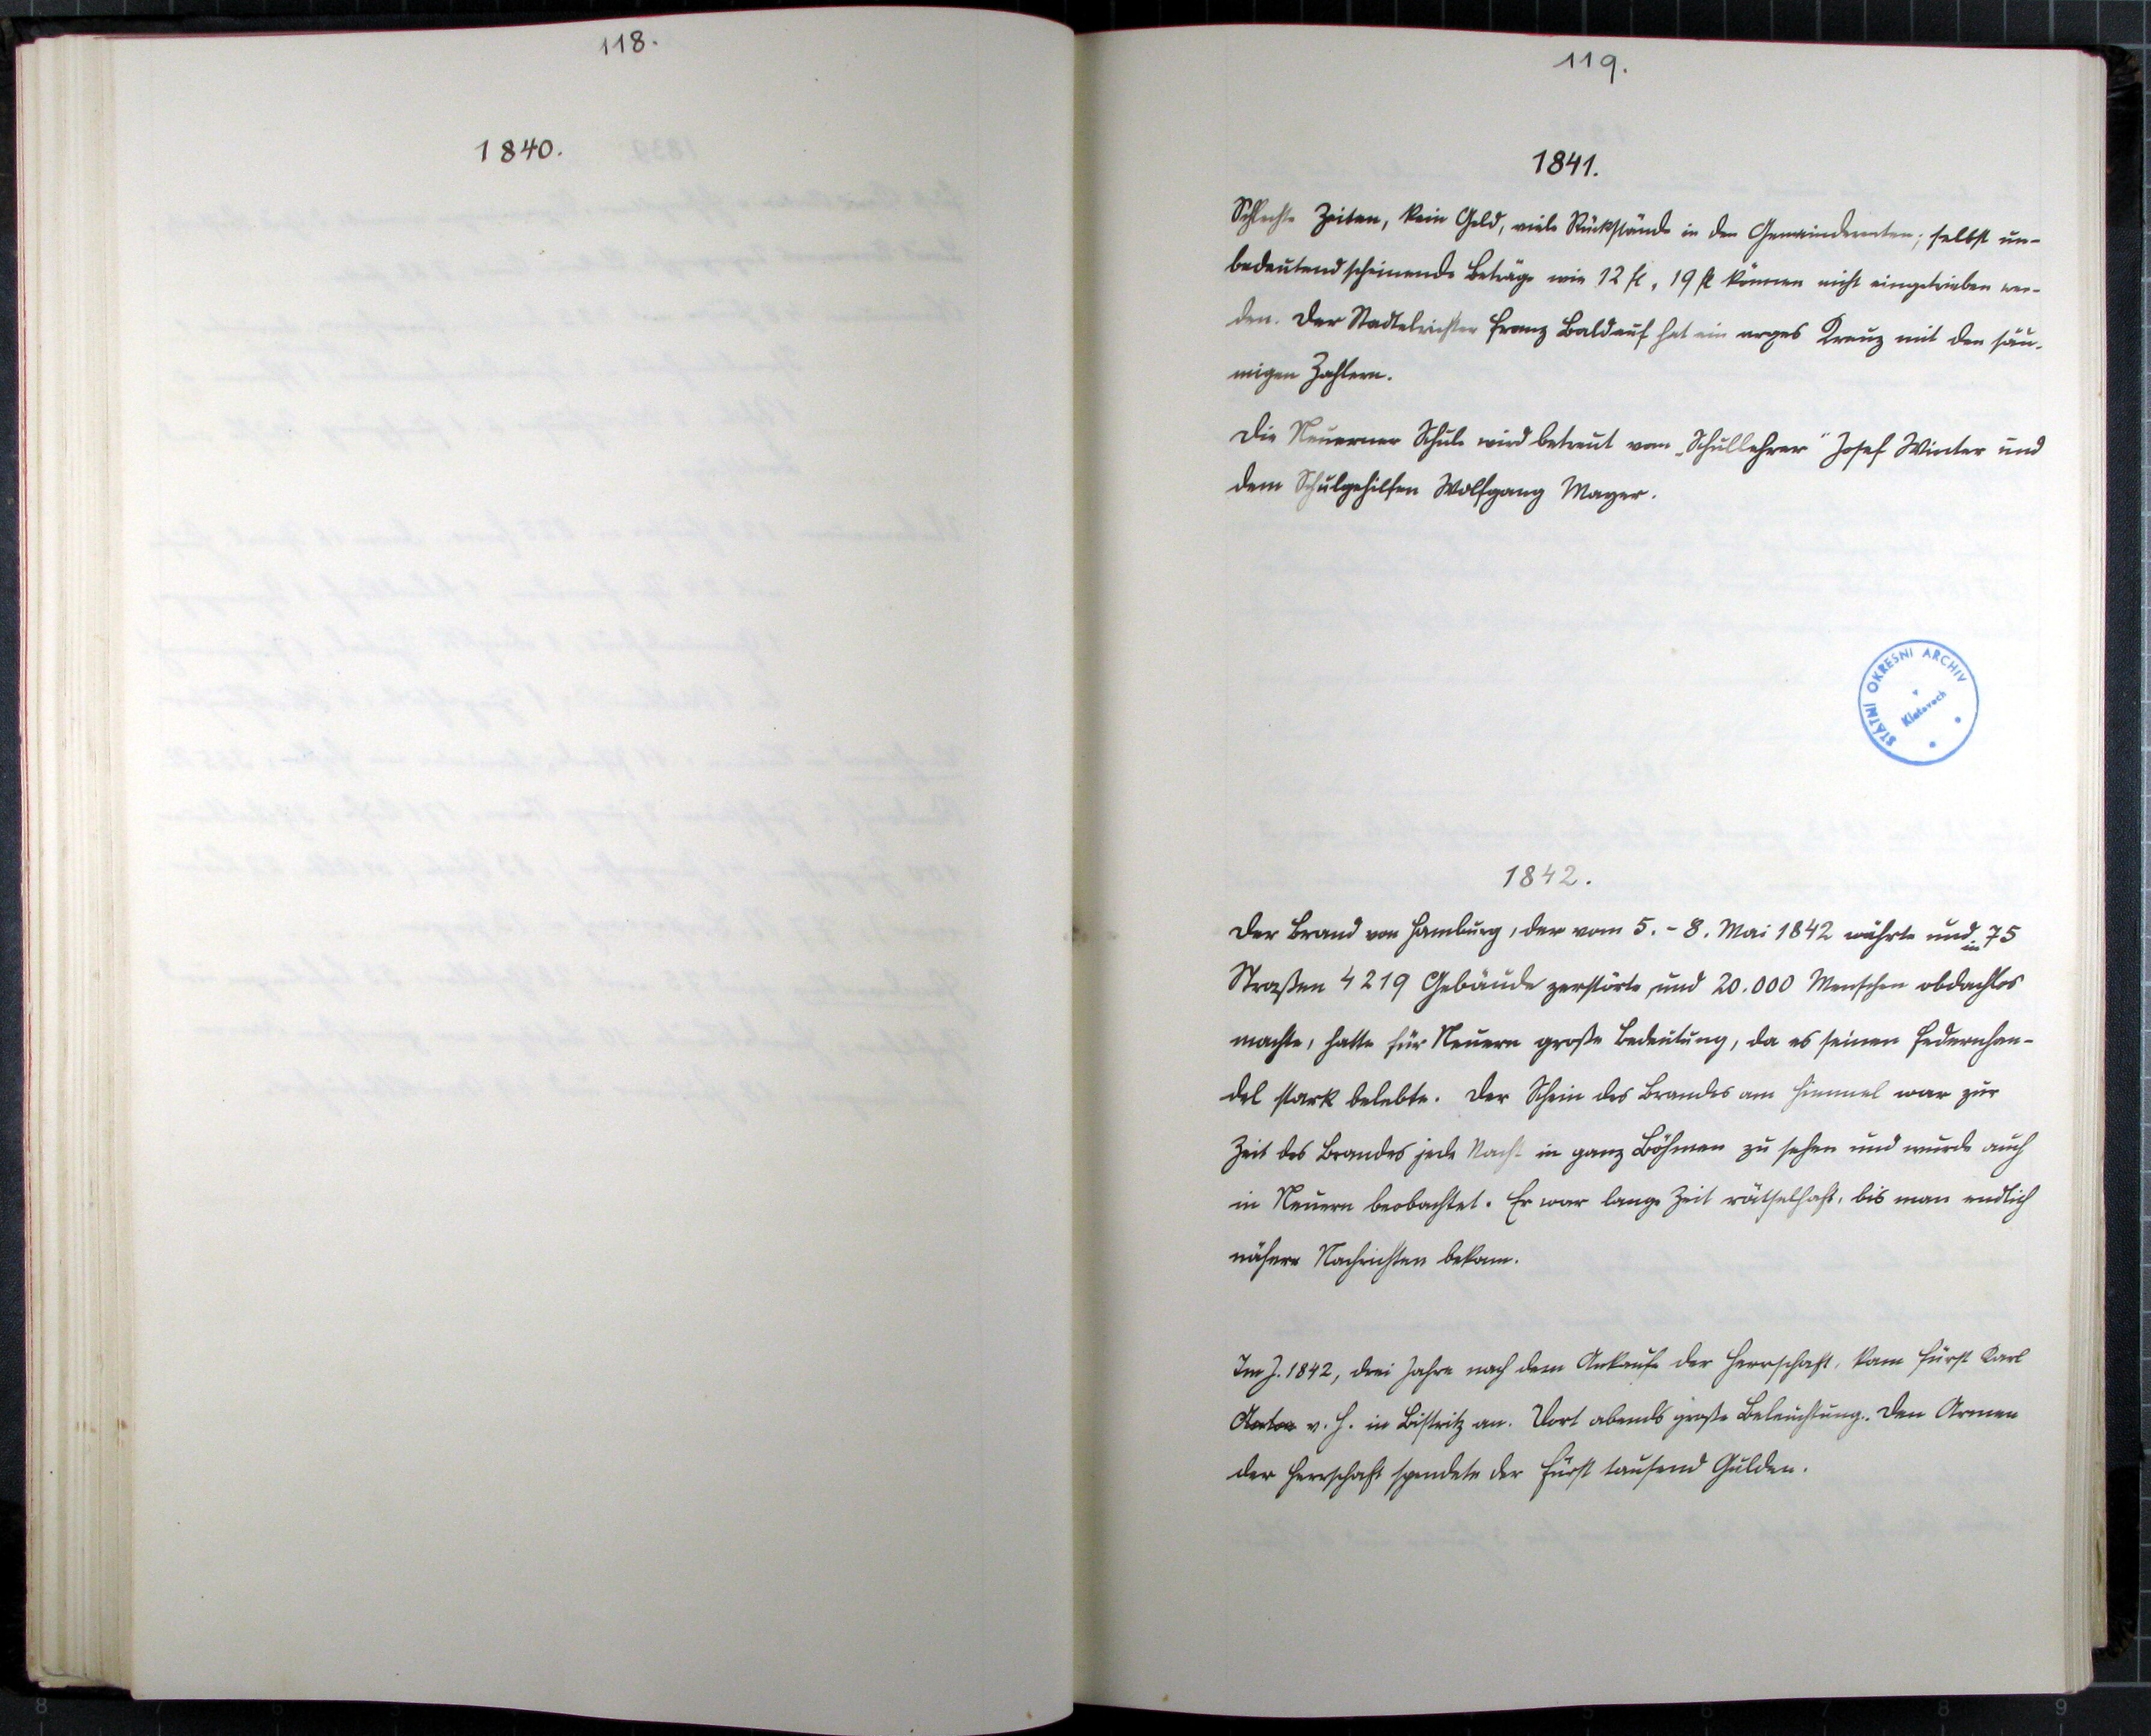 118.
1840.
119.
1841.
Schlechte Zeiten, kein Geld, viele Rückstände in den Gemeinderenten; selbst un-
bedeutend scheinende Beträge wie 12 fl, 19 fl können nicht eingetrieben wer-
den. Der Stadtelrichter Franz Baldauf hat ein arges Kreuz mit den säu-
migen Zahlern.
Die Neuerner Schule wird betreut vom „Schullehrer" Josef Winter und
dem Schulgehilfen Wolfgang Mayer.
STÁTNÍ OKRESNÍ ARCHIV
v
Klatovech
1842.
Der Brand von Hamburg, der vom 5. - 8. Mai 1842 währte und in 75
Straßen 4219 Gebäude zerstörte, und 20.000 Menschen obdachlos
machte, hatte für Neuern große Bedeutung, da es seinen Federnhan-
del stark belebte. Der Schein des Brandes am Himmel war zur
Zeit des Brandes jede Nacht in ganz Böhmen zu sehen und wurde auch
in Neuern beobachtet. Er war lange Zeit rätselhaft, bis man endlich
nähere Nachrichten bekam.
Im J. 1842, drei Jahre nach dem Ankaufe der Herrschaft, kam Fürst Karl
Anton v. H. in Bistritz an. Dort abends große Beleuchtung. Den Armen
der Herrschaft spendete der Fürst tausend Gulden.